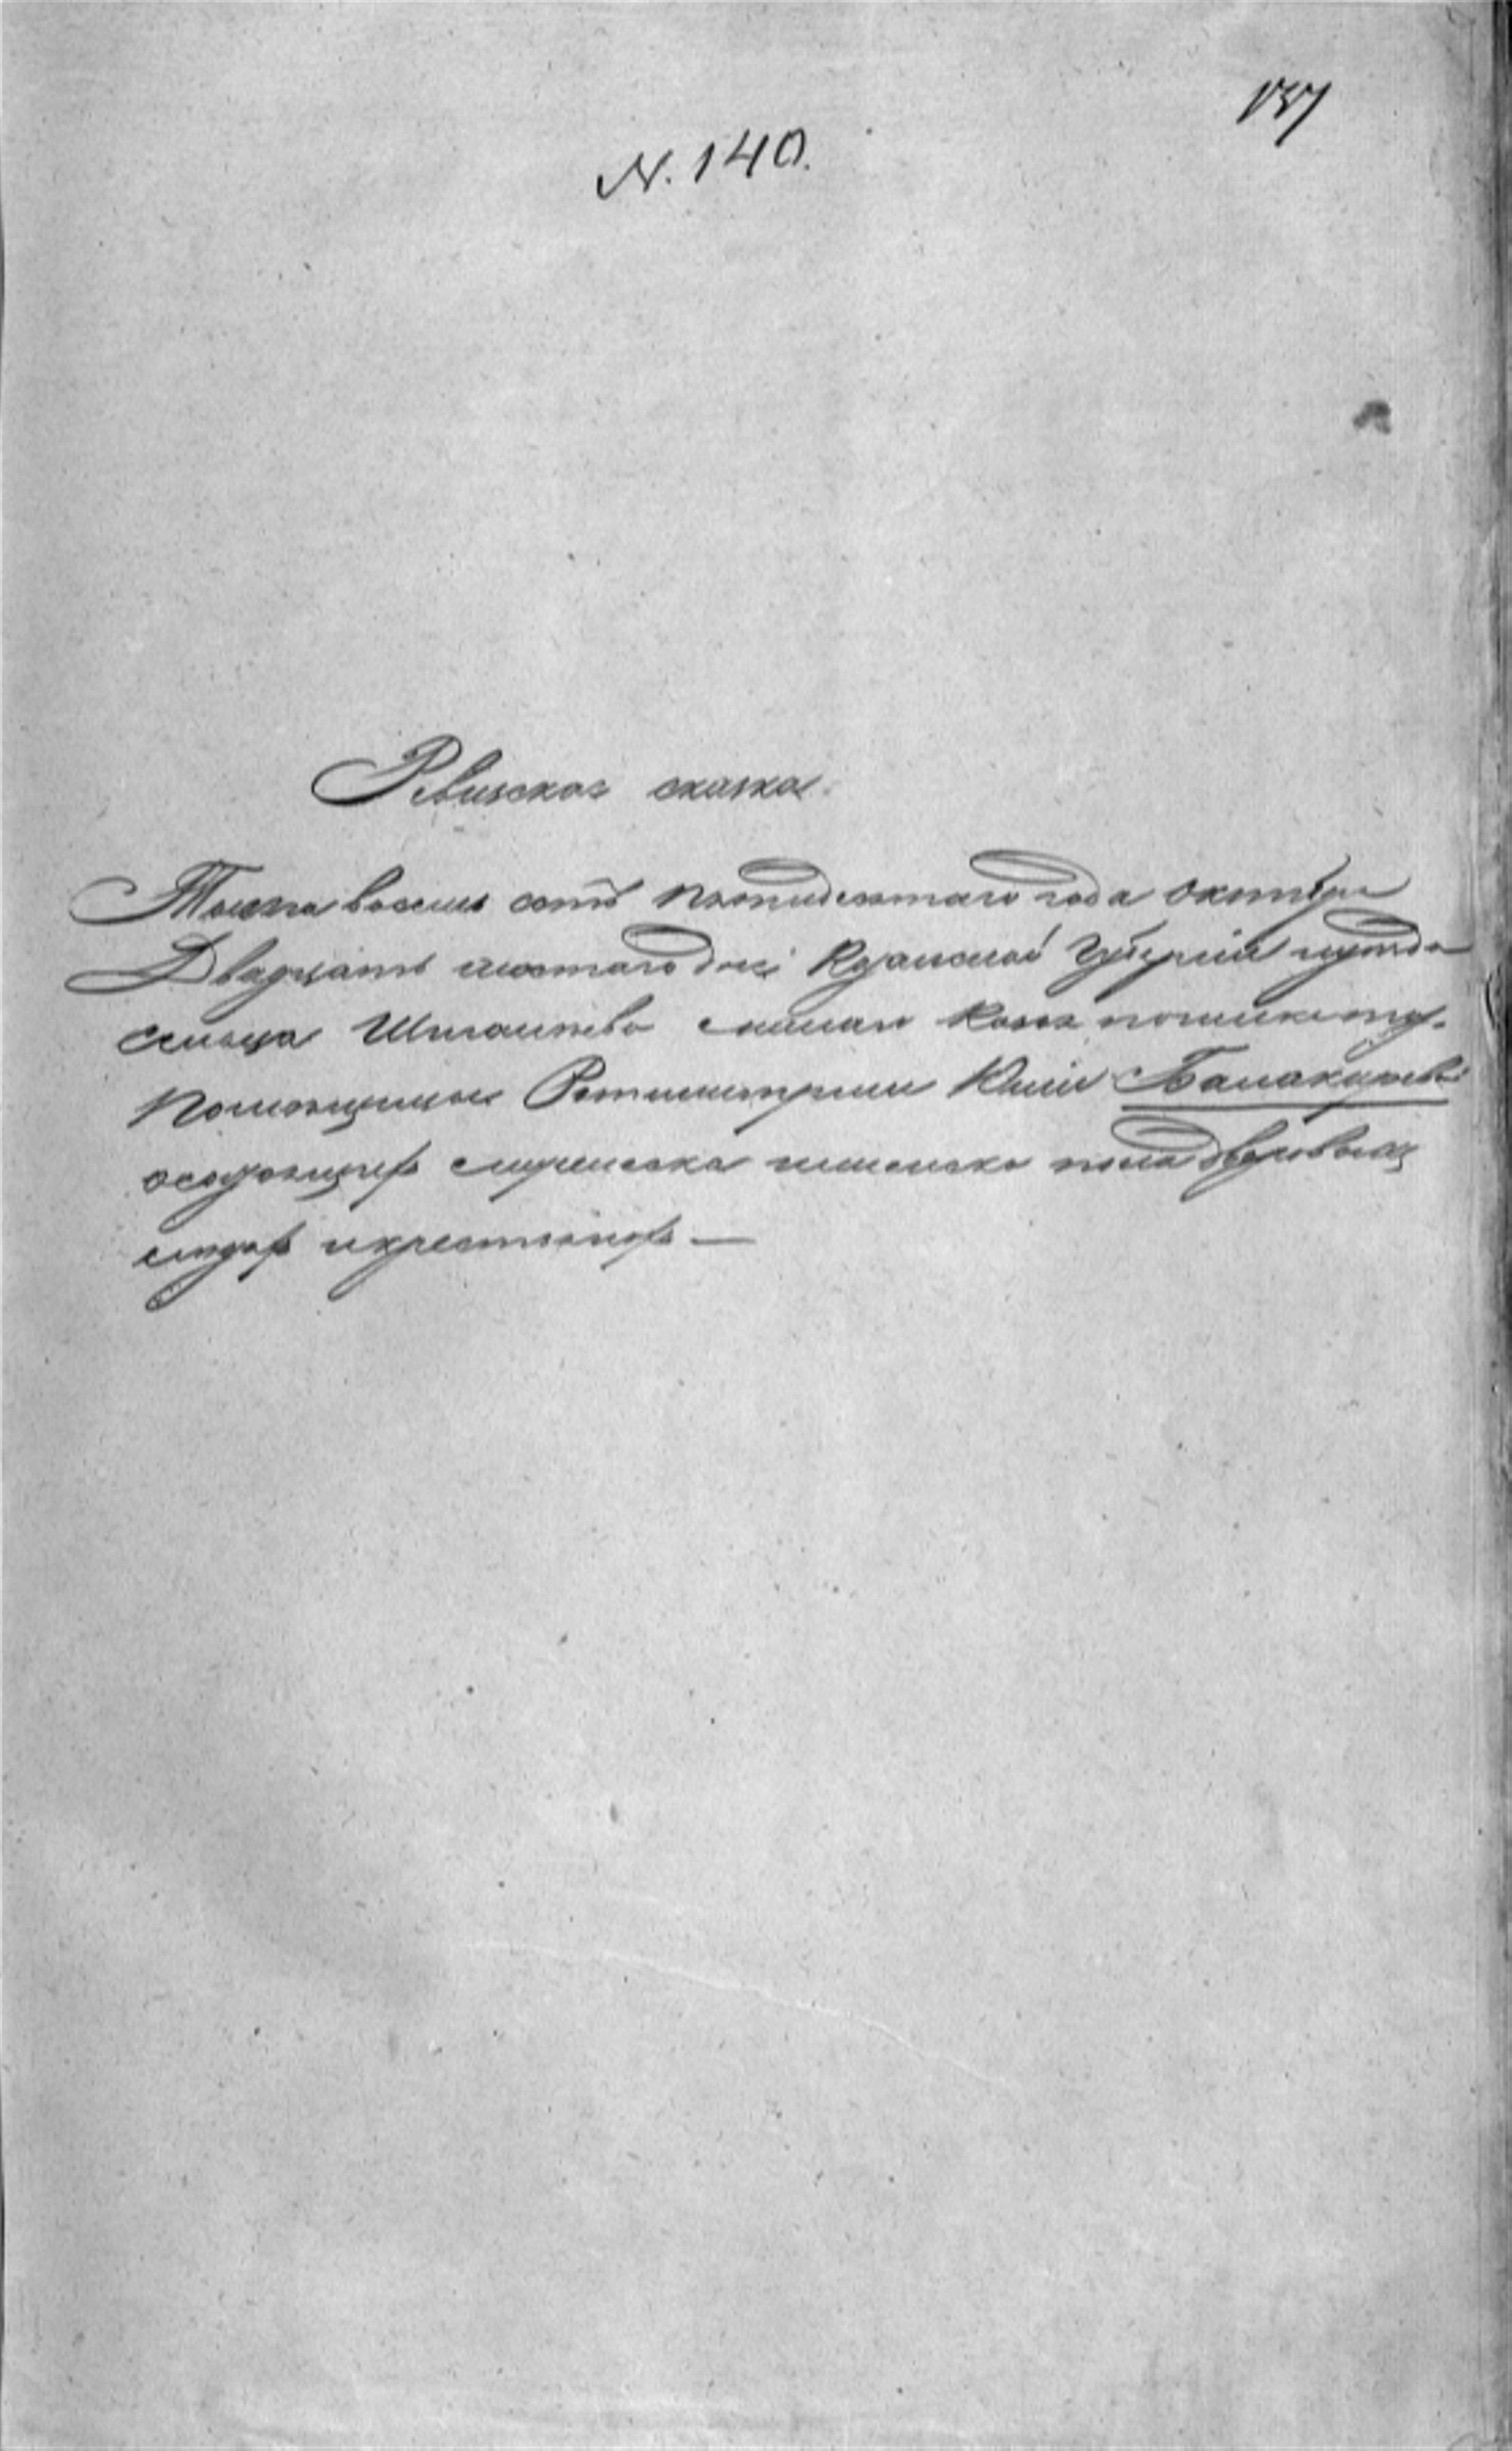 N. 140.
Ревизская сказка.
Тысяча восемь сотъ пятидесятаго года октября
Двадцать шестаго дня Рязанской Губерніи уѣзда
сельца
Помещицы Ротмистрши Юліи Балакиревой
о состоящихъ мужеска и женска пола дворовыхъ
людяхъ и крестьянахъ —